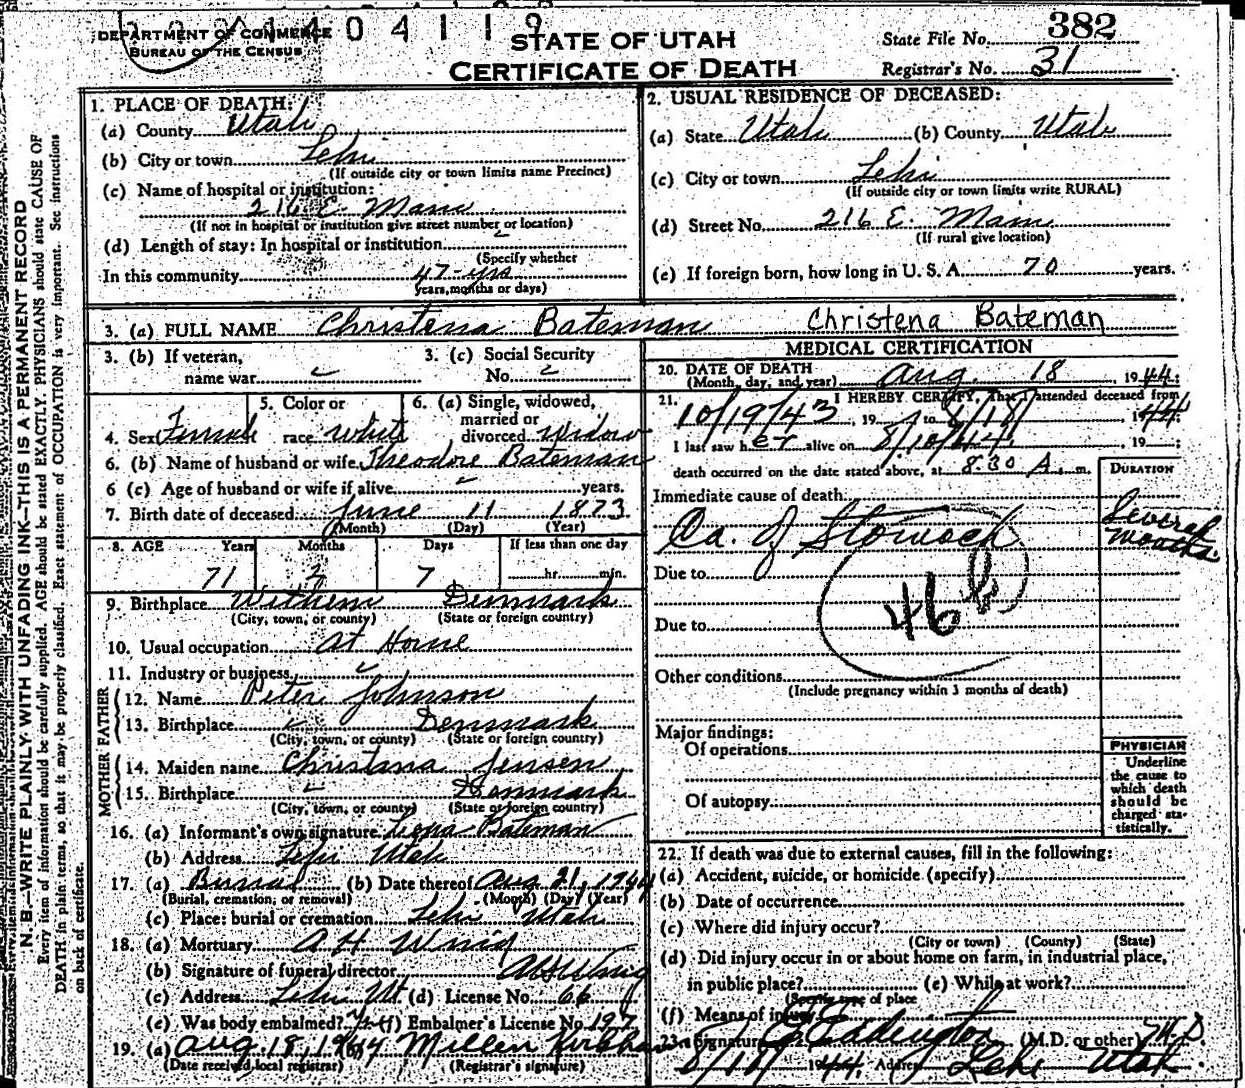 DEPARTMENT OF COMMERCE
BUREAU OF THE CENSUS
STATE OF UTAH
CERTIFICATE OF DEATH
State File No. 382
Registrar's No. 31
N. B.—WRITE PLAINLY WITH UNFADING INK—THIS IS A PERMANENT RECORD
Every item of information should be carefully supplied. AGE should be stated EXACTLY. PHYSICIANS should state CAUSE OF
DEATH in plain terms, so that it may be properly classified. Exact statement of OCCUPATION is very important. See instructions
on back of certificate.
1. PLACE OF DEATH:
(a) County Utah
(b) City or town Lehi
(If outside city or town limits name Precinct)
(c) Name of hospital or institution:
216 E. Main
(If not in hospital or institution give street number or location)
(d) Length of stay: In hospital or institution
(Specify whether
In this community 47-yrs
years, months or days)
2. USUAL RESIDENCE OF DECEASED:
(a) State Utah (b) County Utah
(c) City or town Lehi
(If outside city or town limits write RURAL)
(d) Street No. 216 E. Main
(If rural give location)
(e) If foreign born, how long in U. S. A. 70 years.
3. (a) FULL NAME Christena Bateman Christena Bateman
3. (b) If veteran,
name war
3. (c) Social Security
No.
4. Sex Female
5. Color or
race white
6. (a) Single, widowed,
married or
divorced Widow
6. (b) Name of husband or wife Theodore Bateman
6 (c) Age of husband or wife if alive years.
7. Birth date of deceased June 11 1873
(Month) (Day) (Year)
8. AGE Years Months Days If less than one day
71 2 7 hr. min.
9. Birthplace Denmark
(City, town, or county) (State or foreign country)
10. Usual occupation At Home
11. Industry or business
FATHER
12. Name Peter Johnson
13. Birthplace Denmark
(City, town, or county) (State or foreign country)
MOTHER
14. Maiden name Christana Jensen
15. Birthplace Denmark
(City, town, or county) (State or foreign country)
16. (a) Informant's own signature Leona Bateman
(b) Address Lehi Utah
17. (a) Burial (b) Date thereof Aug 21, 1944
(Burial, cremation, or removal) (Month) (Day) (Year)
(c) Place: burial or cremation Lehi Utah
18. (a) Mortuary A H Wing
(b) Signature of funeral director
(c) Address Lehi Ut (d) License No. 66
(e) Was body embalmed? (f) Embalmer's License No. 197
19. (a) Aug. 18, 1944
(Date received local registrar) (Registrar's signature)
MEDICAL CERTIFICATION
20. DATE OF DEATH
(Month, day, and year) Aug. 18, 1944;
21. I HEREBY CERTIFY, That I attended deceased from
10/19/43, 19 to 8/18/ 1944
I last saw her alive on 8/10/44, 19;
death occurred on the date stated above, at 8:30 A. m.
DURATION
Immediate cause of death
Ca. of Stomach
Several months
Due to
46 b
Due to
Other conditions
(Include pregnancy within 3 months of death)
Major findings:
Of operations
Of autopsy
PHYSICIAN
Underline
the cause to
which death
should be
charged sta-
tistically.
22. If death was due to external causes, fill in the following:
(a) Accident, suicide, or homicide (specify)
(b) Date of occurrence
(c) Where did injury occur?
(City or town) (County) (State)
(d) Did injury occur in or about home on farm, in industrial place,
in public place? (e) While at work?
(Specify type of place
(f) Means of injury
23. Signature Eddington (M.D. or other) M.D.
8/18/ 1944 Address Lehi Utah